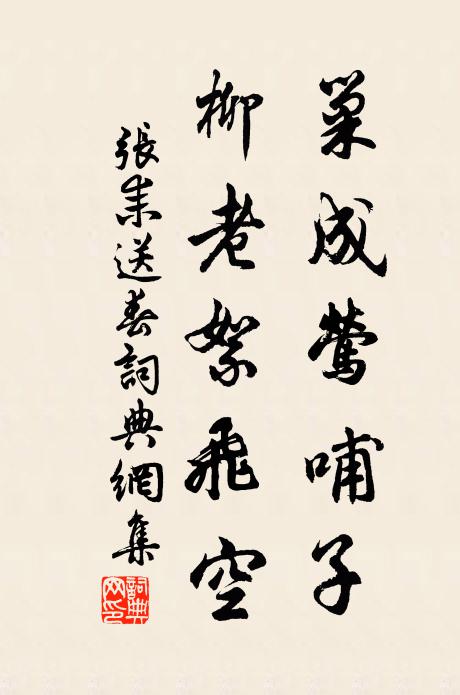 巢成莺哺子
柳老絮飛空
張耒送春詞典網集
詞典网印